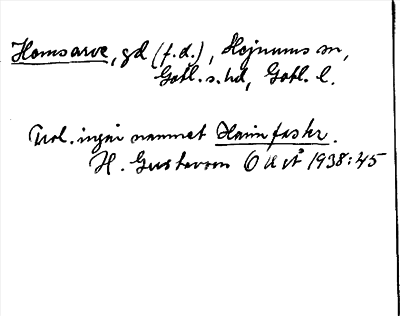 Homsarve, gd (f.d.), Hejnums sn,
Gotl. s. hd, Gotl. l.
Trol. ingår namnet Haimfastr.
H. Gustavson OUÅ 1938:45